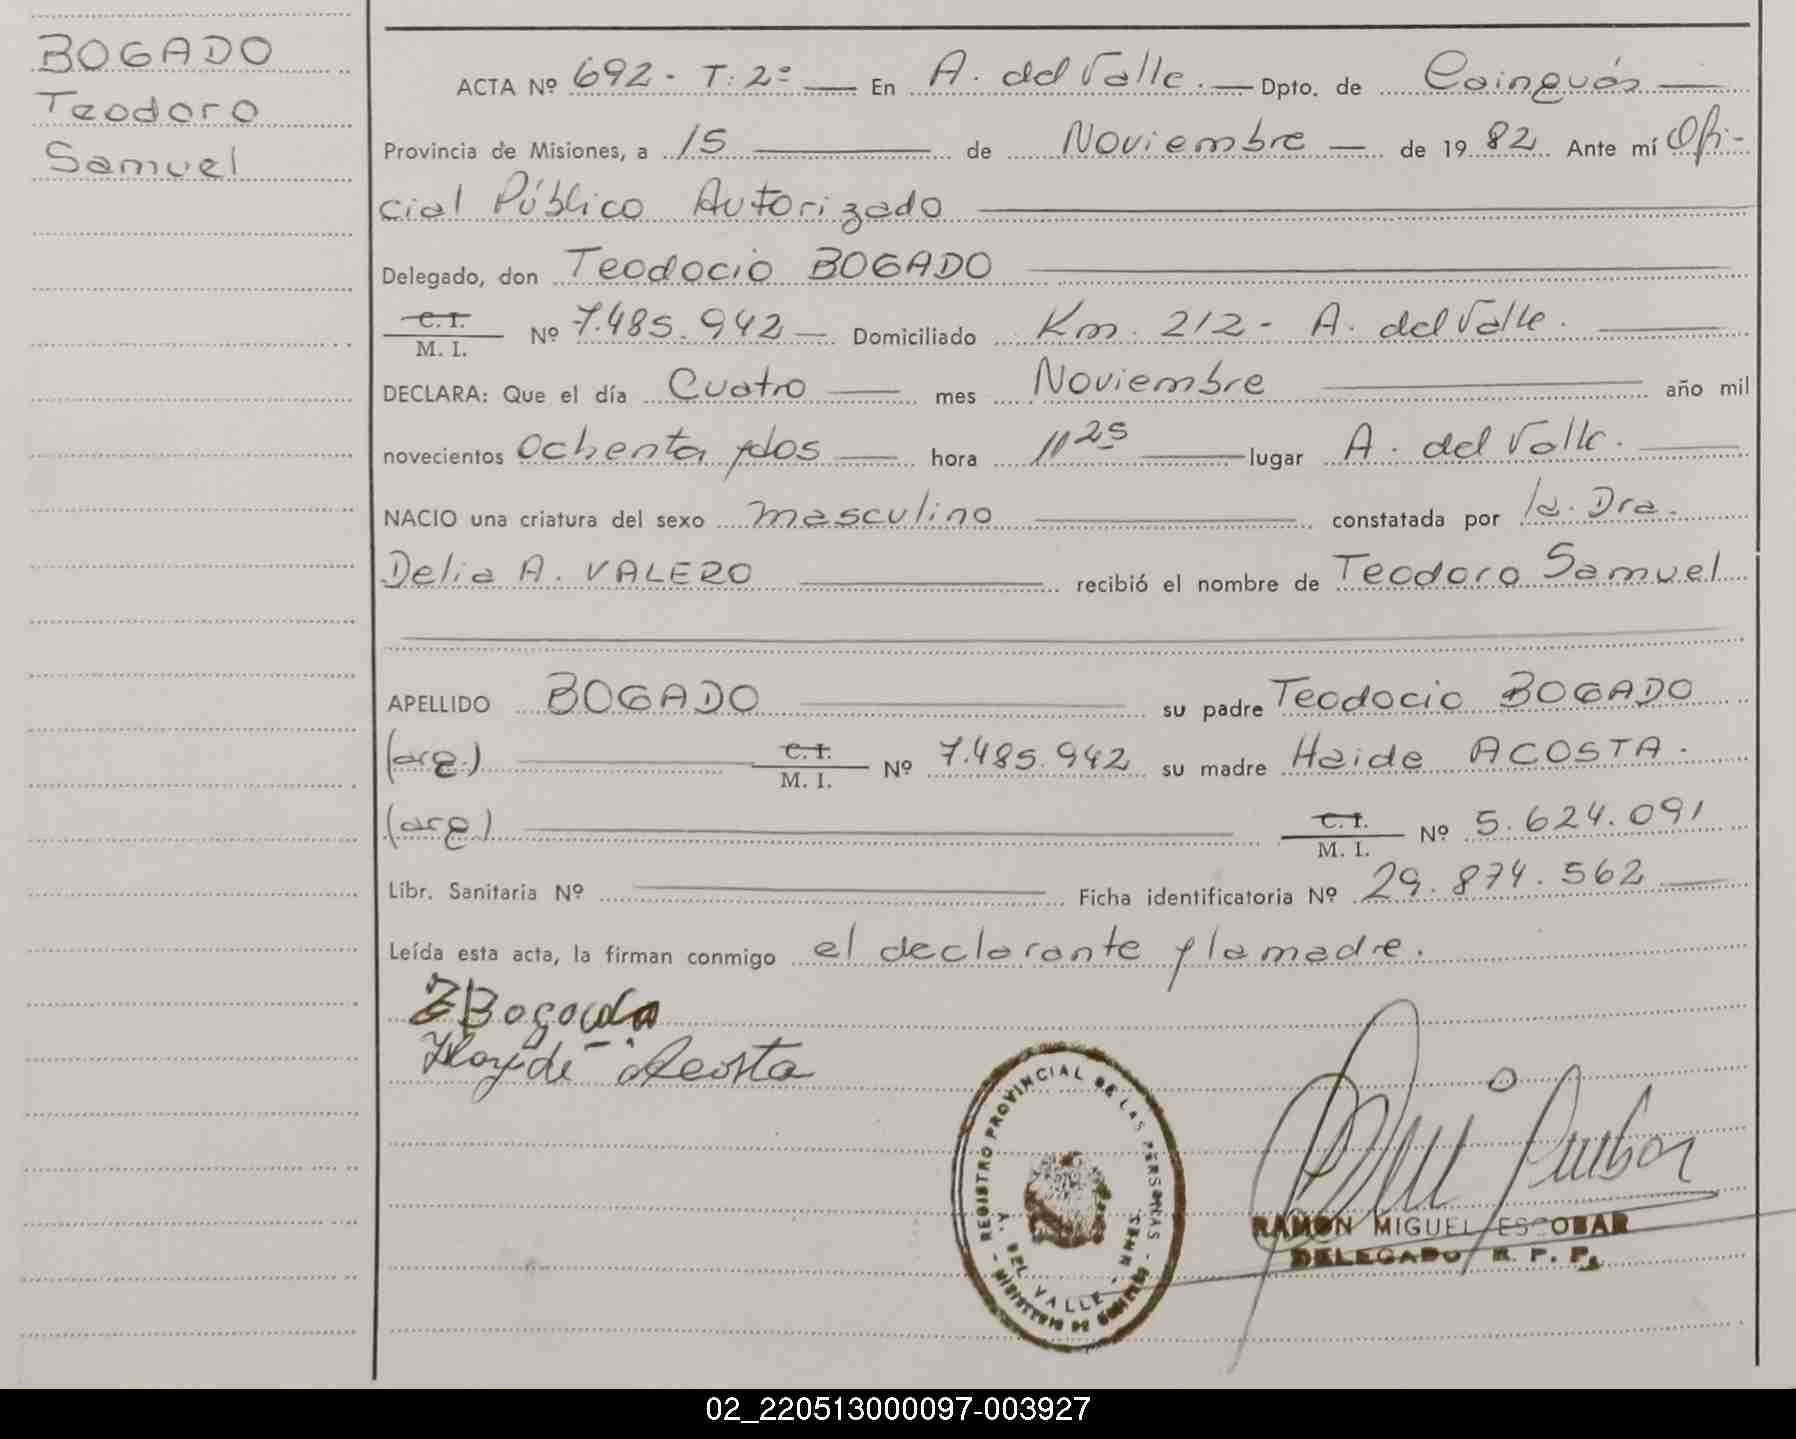 BOGADO
Teodoro
Samuel
ACTA Nº 692 - T: 2º — En A. del Valle. — Dpto. de Cainguás —
Provincia de Misiones, a 15 — de Noviembre — de 19 82 Ante mí Ofi-
cial Público Autorizado
Delegado, don Teodocio BOGADO
C. I.
M. I. Nº 7.485.942 — Domiciliado Km. 212 - A. del Valle.
DECLARA: Que el día Cuatro — mes Noviembre — año mil
novecientos ochenta y dos — hora 11 25 — lugar A. del Valle.
NACIO una criatura del sexo masculino — constatada por la. Dra.
Delia A. VALERO — recibió el nombre de Teodoro Samuel
APELLIDO BOGADO — su padre Teodocio BOGADO
(arg.) — C. I. M. I. Nº 7.485.942 su madre Haide ACOSTA.
(arg) — C. I. M. I. Nº 5.624.091
Libr. Sanitaria Nº — Ficha identificatoria Nº 29.874.562 —
Leída esta acta, la firman conmigo el declarante y la madre.
Bogado
Hayde Acosta
REGISTRO PROVINCIAL DE LAS PERSONAS
A. DEL VALLE - MNES.
MINISTERIO DE GOBIERNO
RAMON MIGUEL ESCOBAR
DELEGADO R. P. P.
02_220513000097-003927